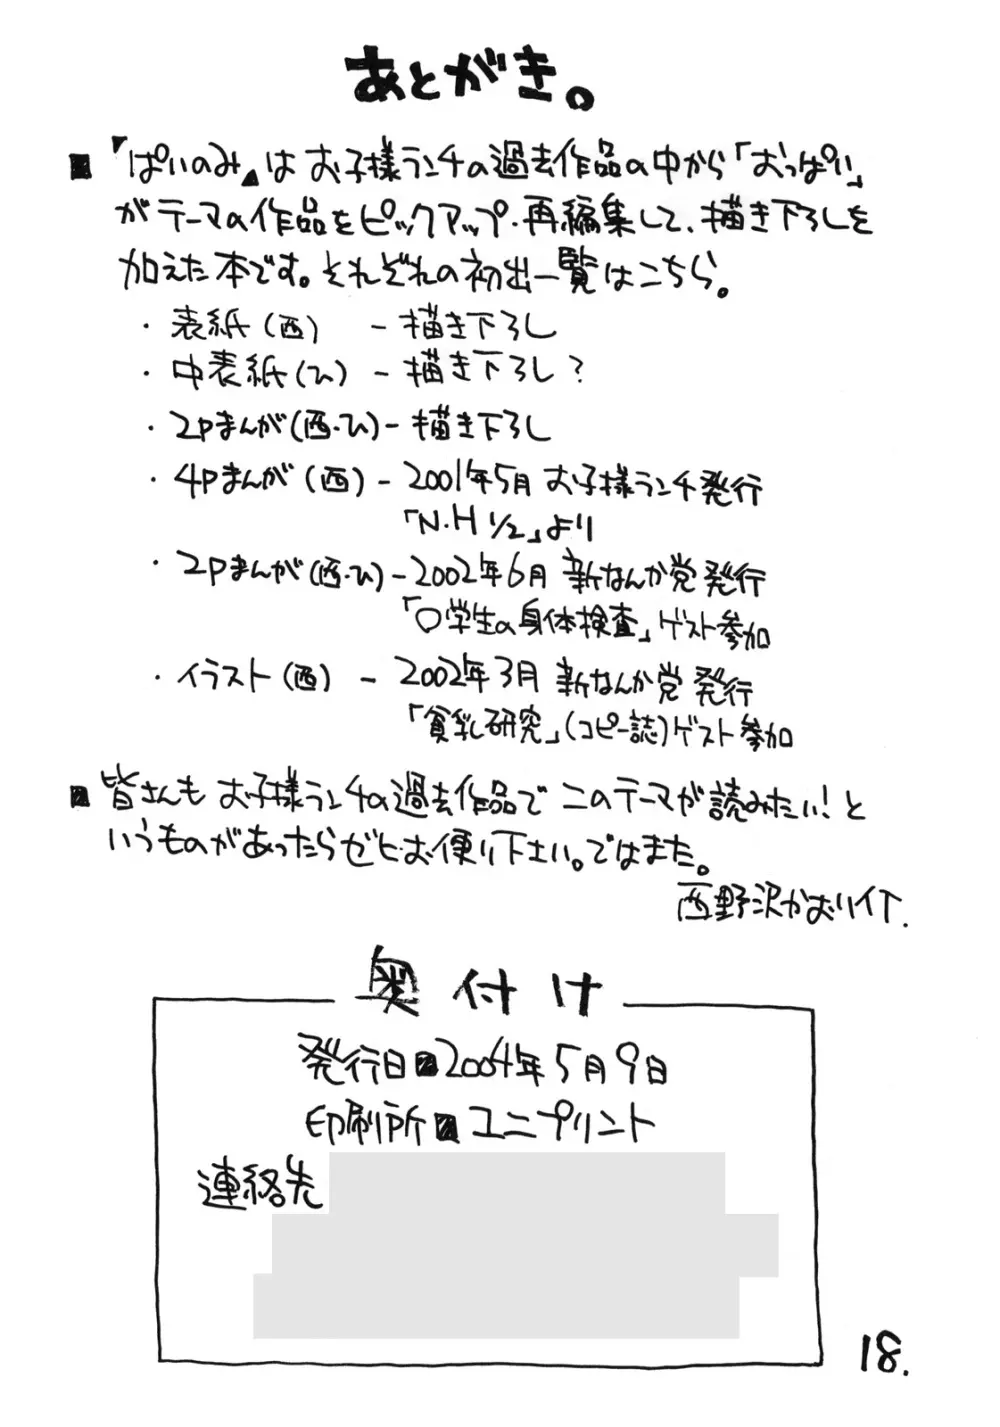 あとがき。
■『ぱいのみ』は お子様ランチの過去作品の中から「おっぱい」
がテーマの作品をピックアップ・再編集して、描き下ろしを
加えた本です。それぞれの初出一覧はこちら。
・表紙(西) －描き下ろし
・中表紙(ひ) －描き下ろし？
・2Pまんが(西・ひ)－描き下ろし
・4Pまんが(西)－2001年5月 お子様ランチ発行
「N・H 1/2」より
・2Pまんが(西・ひ)－2002年6月 新なんか党発行
「〇学生の身体検査」ゲスト参加
・イラスト(西) － 2002年3月 新なんか党発行
「貧乳研究」(コピー誌)ゲスト参加
■皆さんも お子様ランチの過去作品で このテーマが読みたい！と
いうものがあったらゼヒお便り下さい。ではまた。
西野沢かおり
奥付け
発行日■2004年5月9日
印刷所■ユニプリント
連絡先
18.